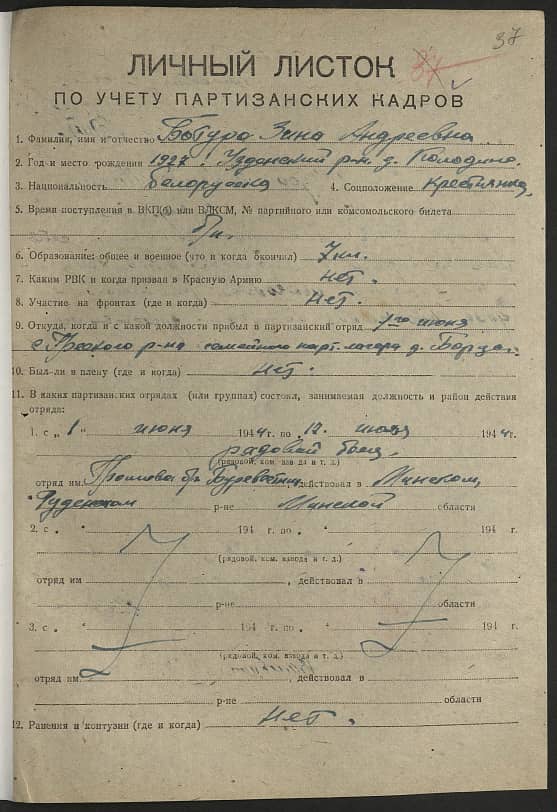 37
37
ЛИЧНЫЙ ЛИСТОК
ПО УЧЕТУ ПАРТИЗАНСКИХ КАДРОВ
1. Фамилия, имя и отчество Ботуро Зина Андреевна
2. Год и место рождения 1927 г. Узденский р-н. д. Колодино.
3. Национальность белорусска 4. Соцположение крестьянка,
5. Время поступления в ВКП(б) или ВЛКСМ, № партийного или комсомольского билета
б/п.
6. Образование: общее и военное (что и когда окончил) 7 кл.
7. Каким РВК и когда призван в Красную Армию нет.
8. Участие на фронтах (где и когда) нет.
9. Откуда, когда и с какой должности прибыл в партизанский отряд 1го июня
с р-на семейного парт. лагеря д.
10. Был-ли в плену (где и когда) нет.
11. В каких партизанских отрядах (или группах) состоял, занимаемая должность и район действия
отряда:
1. с „ 1 " июня 1944 г. по „ 12 " июля 1944 г.
рядовой боец.
(рядовой, ком. взвода и т. д.)
отряд им. бр. Буревестник, действовал в Минском,
Руденском р-не Минской области
2. с „ " 194 г. по „ " 194 г.
(рядовой, ком. взвода и т. д.)
отряд им , действовал в
р-не области
3. с „ " 194 г. по „ " 194 г.
(рядовой, ком. взвода и т. д.)
отряд им. , действовал в
р-не области
12. Ранения и контузии (где и когда) нет.